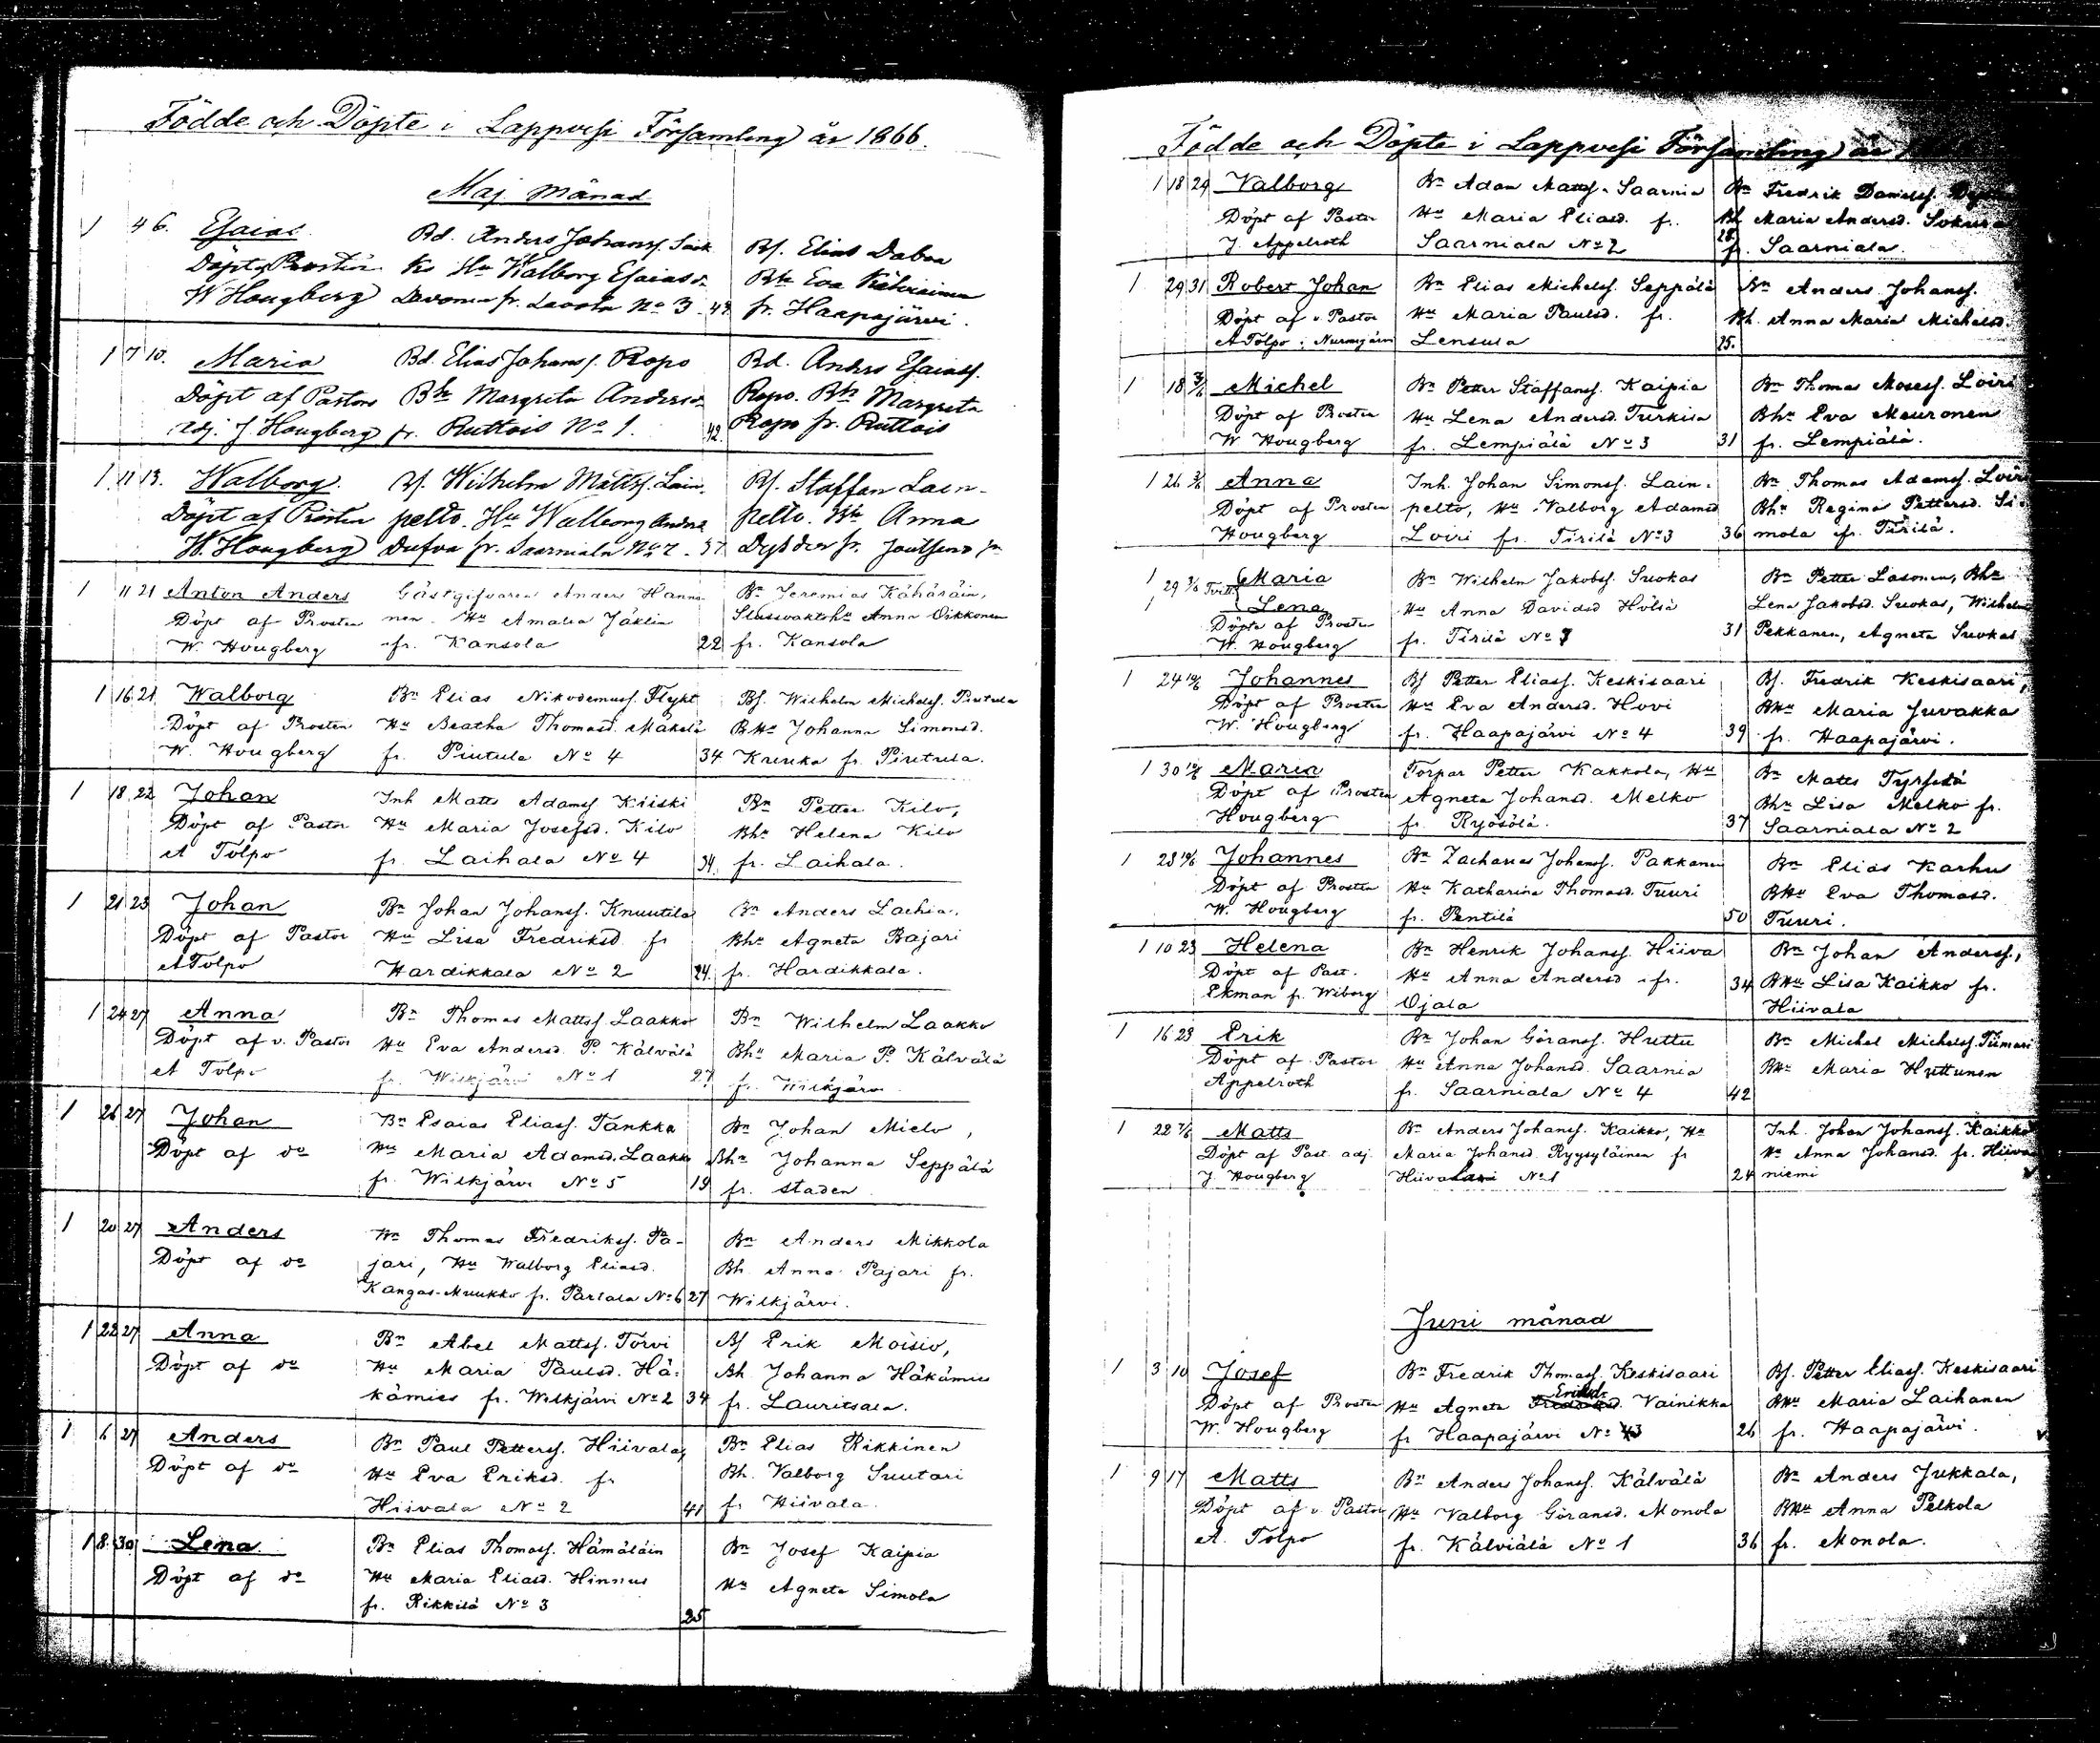 Födde och Döpte i Lappvesi Församling år 1866.
Maj månad
1 4 6. Esaias Bd. Anders Johanss. Bs. Elias Dabaa
Döpt af Prosten Hu Walborg Esaiasd. Bhu Eva
W Hougberg fr. No 3 42 fr. Haapajärvi.
1 7 10. Maria Bd. Elias Johanss. Ropo Bd. Anders Esaiass.
Döpt af Pastors Bhu Margreta Andersd. Ropo. Bhu Margreta
adj. J Hougberg fr. Ruttois No 1. 42. Ropo fr. Ruttois
1 11 13. Walborg. Bs. Wilhelm Mattss. Lain- Bs. Staffan Lain-
Döpt af Prosten pelto. Hu Walborg Andersd. pelto. Bhu Anna
W. Hougberg Dufva fr. Saarniala No 2. 37 fr.
1 11 21 Anton Anders Gästgifvaren Anders Hanno- Bn Jeremias Kähäräin,
Döpt af Prosten nen. Hu Amalia Jäklin Slussvaktshu Anna Oikkonen
W. Hougberg fr. Kansola 22 fr. Kansola
1 16 21 Walborg Bn Elias Nikodemuss. Flykt Bs. Wilhelm Michelss. Piutula
Döpt af Prosten Hu Beatha Thomasd. Mäkelä BHu Johanna Simonsd.
W. Hougberg fr. Piutula No 4 34 Kruuka fr. Piutula.
1 18 22 Johan Inh Matts Adamss Kiiski Bn Petter Kilo,
Döpt af Pastor Hu Maria Josefsd. Kilo Bhu Helena Kilo
A Tolpo fr. Laihala No 4 34. fr. Laihala.
1 21 23 Johan Bn Johan Johanss. Knuutila Bn Anders Lachia,
Döpt af Pastor Hu Lisa Fredriksd. fr Bhu Agneta Bajari
A Tolpo Hardikkala No 2 24. fr. Hardikkala.
1 24 27 Anna Bn Thomas Mattss Laakko Bn Wilhelm Laakko
Döpt af v. Pastor Hu Eva Andersd. P. Kälvälä Bhu Maria P. Kälvälä
A Tolpo fr. Wilkjärvi No 1 27 fr. Wilkjärvi
1 26 27 Johan Bn Esaias Eliass. Tankka Bn Johan Mielo,
Döpt af do Hu Maria Adamsd. Laakko Bhu Johanna Seppälä
fr. Wilkjärvi No 5 19 fr. staden
1 20 27 Anders Bn Thomas Fredrikss. Pa- Bn Anders Mikkola
Döpt af do jari, Hu Walborg Eliasd. Bh. Anna Pajari fr.
Kangas-Muukko fr. Partala No 6 27 Wilkjärvi.
1 22 27 Anna Bn Abel Mattss. Torvi Bs Erik Moisio,
Döpt af do Hu Maria Paulsd. Hä- Bh Johanna Häkämies
kämies fr. Wilkjärvi No 2 34 fr. Lauritsala.
1 6 27 Anders Bn Paul Petterss. Hiivala, Bn Elias Rikkinen
Döpt af do Hu Eva Eriksd. fr Bh. Valborg Suutari
Hiivala No 2 41 fr Hiivala.
1 8. 30. Lena Bn Elias Thomass. Hämäläin Bn Josef Kaipia
Döpt af do Hu Maria Eliasd. Hinnus Hu Agneta Simola
fr. Rikkilä No 3 25
Födde och Döpte i Lappvesi Församling år
1 18 24 Valborg Bn Adam Mattss. Saarnia Bn Fredrik Danielss.
Döpt af Pastor Hu Maria Eliasd. fr. Bh Maria Andersd.
J. Appelroth Saarniala No 2 28. fr. Saarniala.
1 29 31 Robert Johan Bn Elias Michelss. Seppälä Bn Anders Johanss.
Döpt af v. Pastor Hu Maria Paulsd. fr. Bh. Anna Maria Michelsd.
A Tolpo i Nurmijärvi Lensula 25.
1 18 3/6 Michel Bn Petter Staffanss. Kaipia Bn Thomas Mosess. Loiri
Döpt af Prosten Hu Lena Andersd. Turkisa Bhu Eva Meuronen
W Hougberg fr. Lempiälä No 3 31 fr. Lempiälä.
1 26 3/6 Anna Inh. Johan Simonss. Lain- Bn Thomas Adamss. Loiri
Döpt af Prosten pelto, Hu Valborg Adamsd Bhu Regina Pettersd. Si-
Hougberg Loiri fr. Tirilä No 3 36 mola fr. Tirilä.
1 29 3/6 Maria Bn Wilhelm Jakobss. Suokas Bn Petter Lasonen, Bhu
1 Lena Hu Anna Davidsd Hölsä Lena Jakobsd. Suokas, Wilhelm
Döpte af Prosten 31 Pekkanen, Agneta Suokas
W. Hougberg fr. Tirilä No 7
1 24 10/6 Johannes Bs Petter Eliass. Keskisaari Bs. Fredrik Keskisaari,
Döpt af Prosten Hu Eva Andersd. Hovi BHu Maria Juvakka
W. Hougberg fr. Haapajärvi No 4 39 fr. Haapajärvi.
1 30 10/6 Maria Torpar Petter Kakkola, Hu Bn Matts Tyrsistä
Döpt af Prosten Agneta Johansd. Melko Bhu Lisa Melko fr.
Hougberg fr. Ryösölä. 37 Saarniala No 2
1 23 10/6 Johannes Bn Zacharias Johanss. Pakkanen Bn Elias Karhu
Döpt af Prosten Hu Katharina Thomasd. Tuuri BHu Eva Thomasd.
W. Hougberg fr. Pentilä 50 Tuuri.
1 10 23 Helena Bn Henrik Johanss. Hiiva Bn Johan Anderss.,
Döpt af Past. Hu Anna Andersd fr. 34 BHu Lisa Kaikko fr.
Ekman fr. Wiborg Ojala Hiivala
1 16 23 Erik Bn Johan Göranss. Huttu Bn Michel Michelss. Tiimari
Döpt af Pastor Hu Anna Johansd. Saarnia BHu Maria Huttunen
Appelroth fr. Saarniala No 4 42
1 22 7/6 Matts Bn Anders Johanss. Kaikko, Hu Inh. Johan Johanss. Kaikko
Döpt af Past. adj. Maria Johansd. Ryysyläinen fr Hu Anna Johansd. fr. Hiiva-
J Hougberg No 1 24 niemi
Juni månad
1 3 10 Josef Bn Fredrik Thomass. Keskisaari Bs. Petter Eliass. Keskisaari
Döpt af Prosten Hu Agneta Eriksd. Vainikka BHu Maria Laihanen
W. Hougberg fr Haapajärvi No 3 26 fr. Haapajärvi.
1 9 17 Matts Bn Anders Johanss. Kälvälä Bn Anders Jukkala,
Döpt af v. Pastor Hu Valborg Göransd. Monola BHu Anna Pelkola
A. Tolpo fr. Kälviälä No 1 36 fr. Monola.